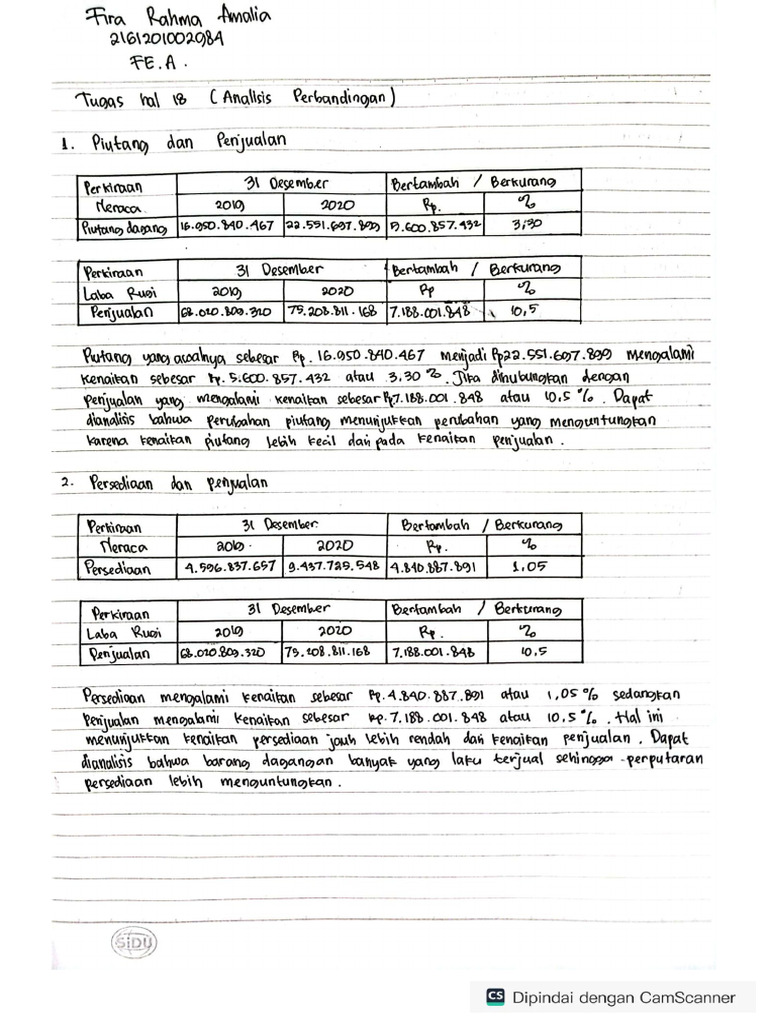 Fira Rahma Amalia
2161201002984
FE.A.
Tugas hal 18 (Analisis Perbandingan)
1. Piutang dan Penjualan
Perkiraan 31 Desember Bertambah / Berkurang
Neraca 2019 2020 Rp. %
Piutang dagang 16.950.840.467 22.551.697.899 5.600.857.432 3,30
Perkiraan 31 Desember Bertambah / Berkurang
Laba Rugi 2019 2020 Rp %
Penjualan 68.020.809.320 75.208.811.168 7.188.001.848 10,5
Piutang yang awalnya sebesar Rp. 16.950.840.467 menjadi Rp22.551.697.899 mengalami
kenaikan sebesar Rp. 5.600.857.432 atau 3,30 %. Jika dihubungkan dengan
penjualan yang mengalami kenaikan sebesar Rp7.188.001.848 atau 10,5 %. Dapat
dianalisis bahwa perubahan piutang menunjukkan perubahan yang menguntungkan
karena kenaikan piutang lebih kecil dari pada kenaikan penjualan.
2. Persediaan dan penjualan
Perkiraan 31 Desember Bertambah / Berkurang
Neraca 2019. 2020 Rp. %
Persediaan 4.596.837.657 9.437.725.548 4.840.887.891 1,05
Perkiraan 31 Desember Bertambah / Berkurang
Laba Rugi 2019 2020 Rp. %
Penjualan 68.020.809.320 75.208.811.168 7.188.001.848 10,5
Persediaan mengalami kenaikan sebesar Rp. 4.840.887.891 atau 1,05 % sedangkan
Penjualan mengalami kenaikan sebesar Rp. 7.188.001.848 atau 10,5 %. Hal ini
menunjukkan kenaikan persediaan jauh lebih rendah dari kenaikan penjualan. Dapat
dianalisis bahwa barang dagangan banyak yang laku terjual sehingga perputaran
persediaan lebih menguntungkan.
SiDU
CS Dipindai dengan CamScanner